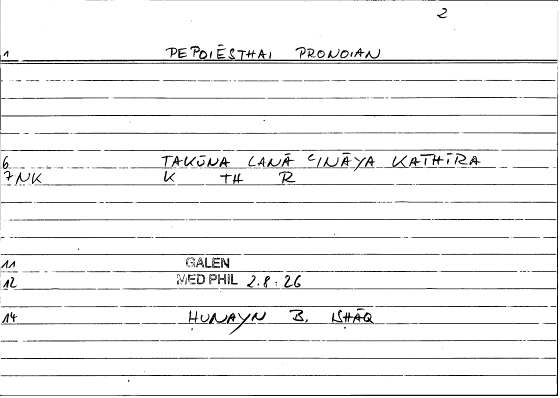 2
1 PEPOIĒSTHAI PRONOIAN
6 TAKŪNA LANĀ ʿINĀYA KATHĪRA
7 NK K TH R
11 GALEN
12 MED PHIL 2.8:26
14 ḤUNAYN B. ISḤĀQ